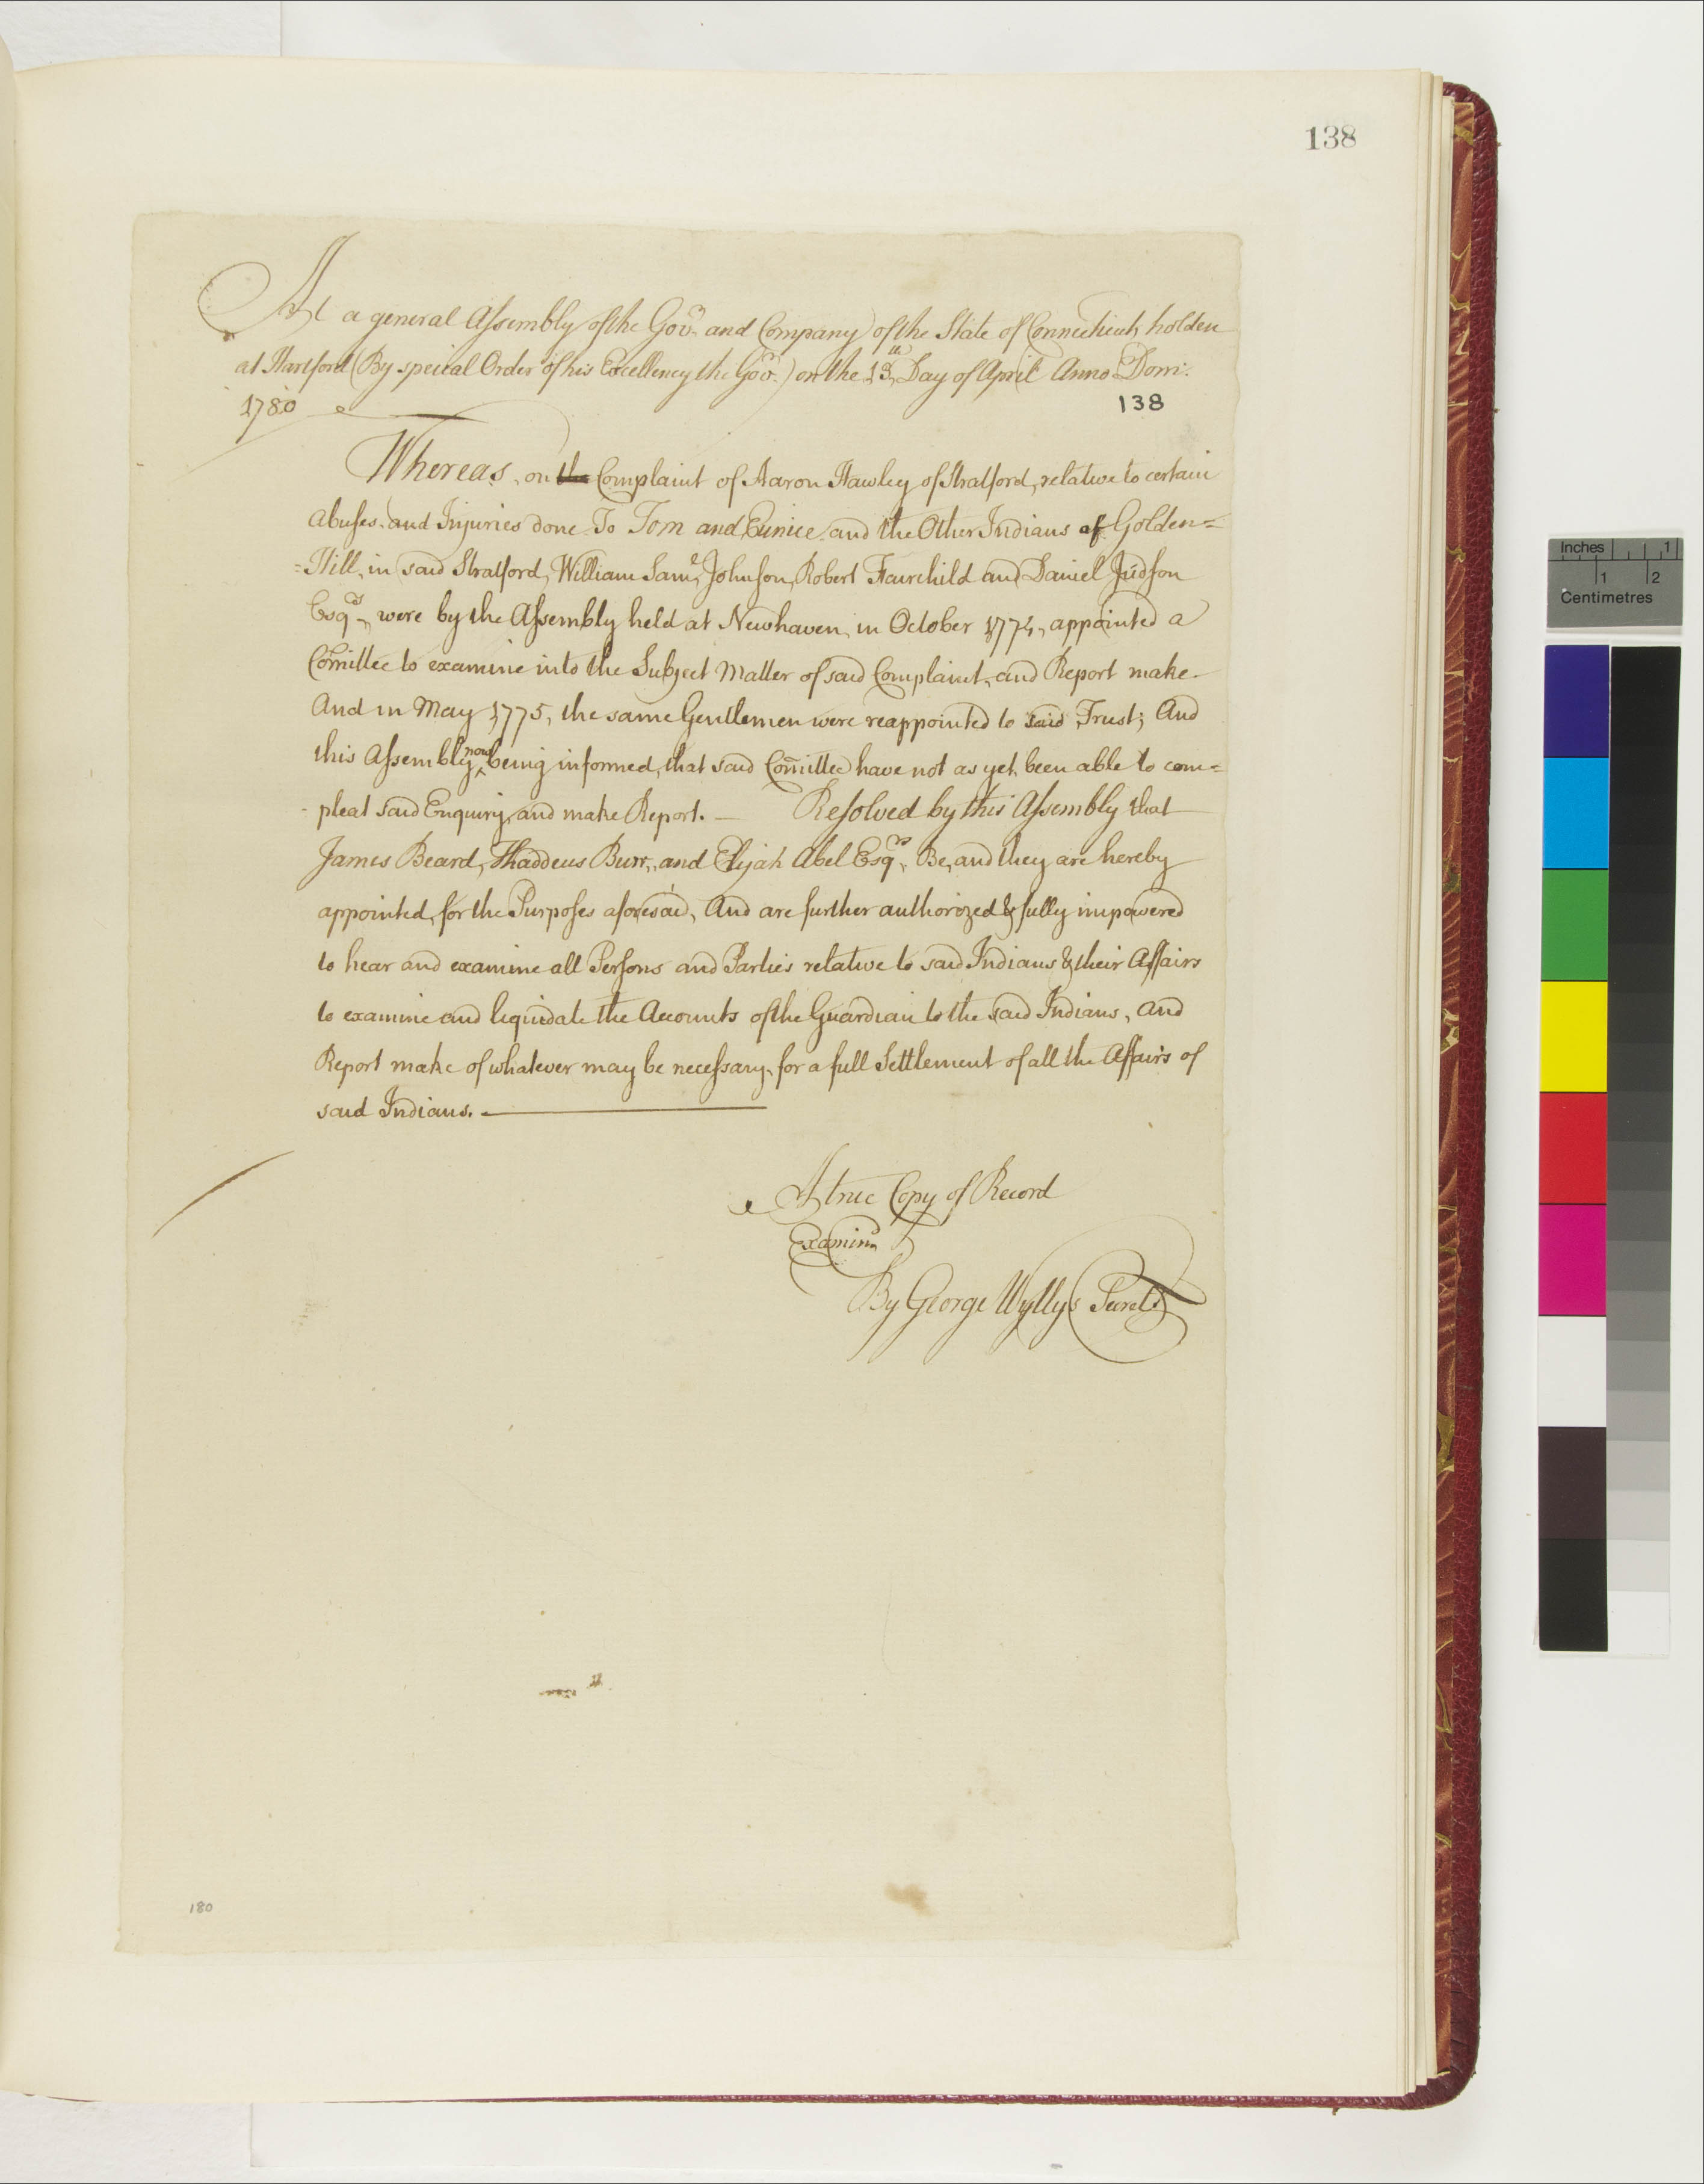 138
At a general Assembly of the Govr. and Company of the State of Connecticut holden
at Hartford (By special Order of his Excellency the Govr.) on the 13th Day of April Anno Dom:
1780
138
Whereas, on the Complaint of Aaron Hawley of Stratford, relative to certain
Abuses and Injuries done To Tom and Eunice and the Other Indians of Golden=
=Hill, in said Stratford, William Saml. Johnson, Robert Fairchild and Daniel Judson
Esqrs, were by the Assembly held at Newhaven, in October 1774, appointed a
Comittee to examine into the Subject Matter of said Complaint, and Report make
And in May 1775, the same Gentlemen were reappointed to said Trust; And
this Assembly now being informed, that said Comittee have not as yet been able to com=
pleat said Enquiry, and make Report. — Resolved by this Assembly that
James Beard, Thaddeus Burr, and Elijah Abel Esqrs, Be, and they are hereby
appointed, for the Purposes aforesaid, And are further authorized & fully impowered
to hear and examine all Persons and Parties relative to said Indians & their Affairs
to examine and liquidate the Accounts of the Guardian to the said Indians, and
Report make of whatever may be necessary, for a full Settlement of all the Affairs of
said Indians. —
A true Copy of Record
Examind
By George Wyllys Secrety
180
Inches 1
1 2
Centimetres